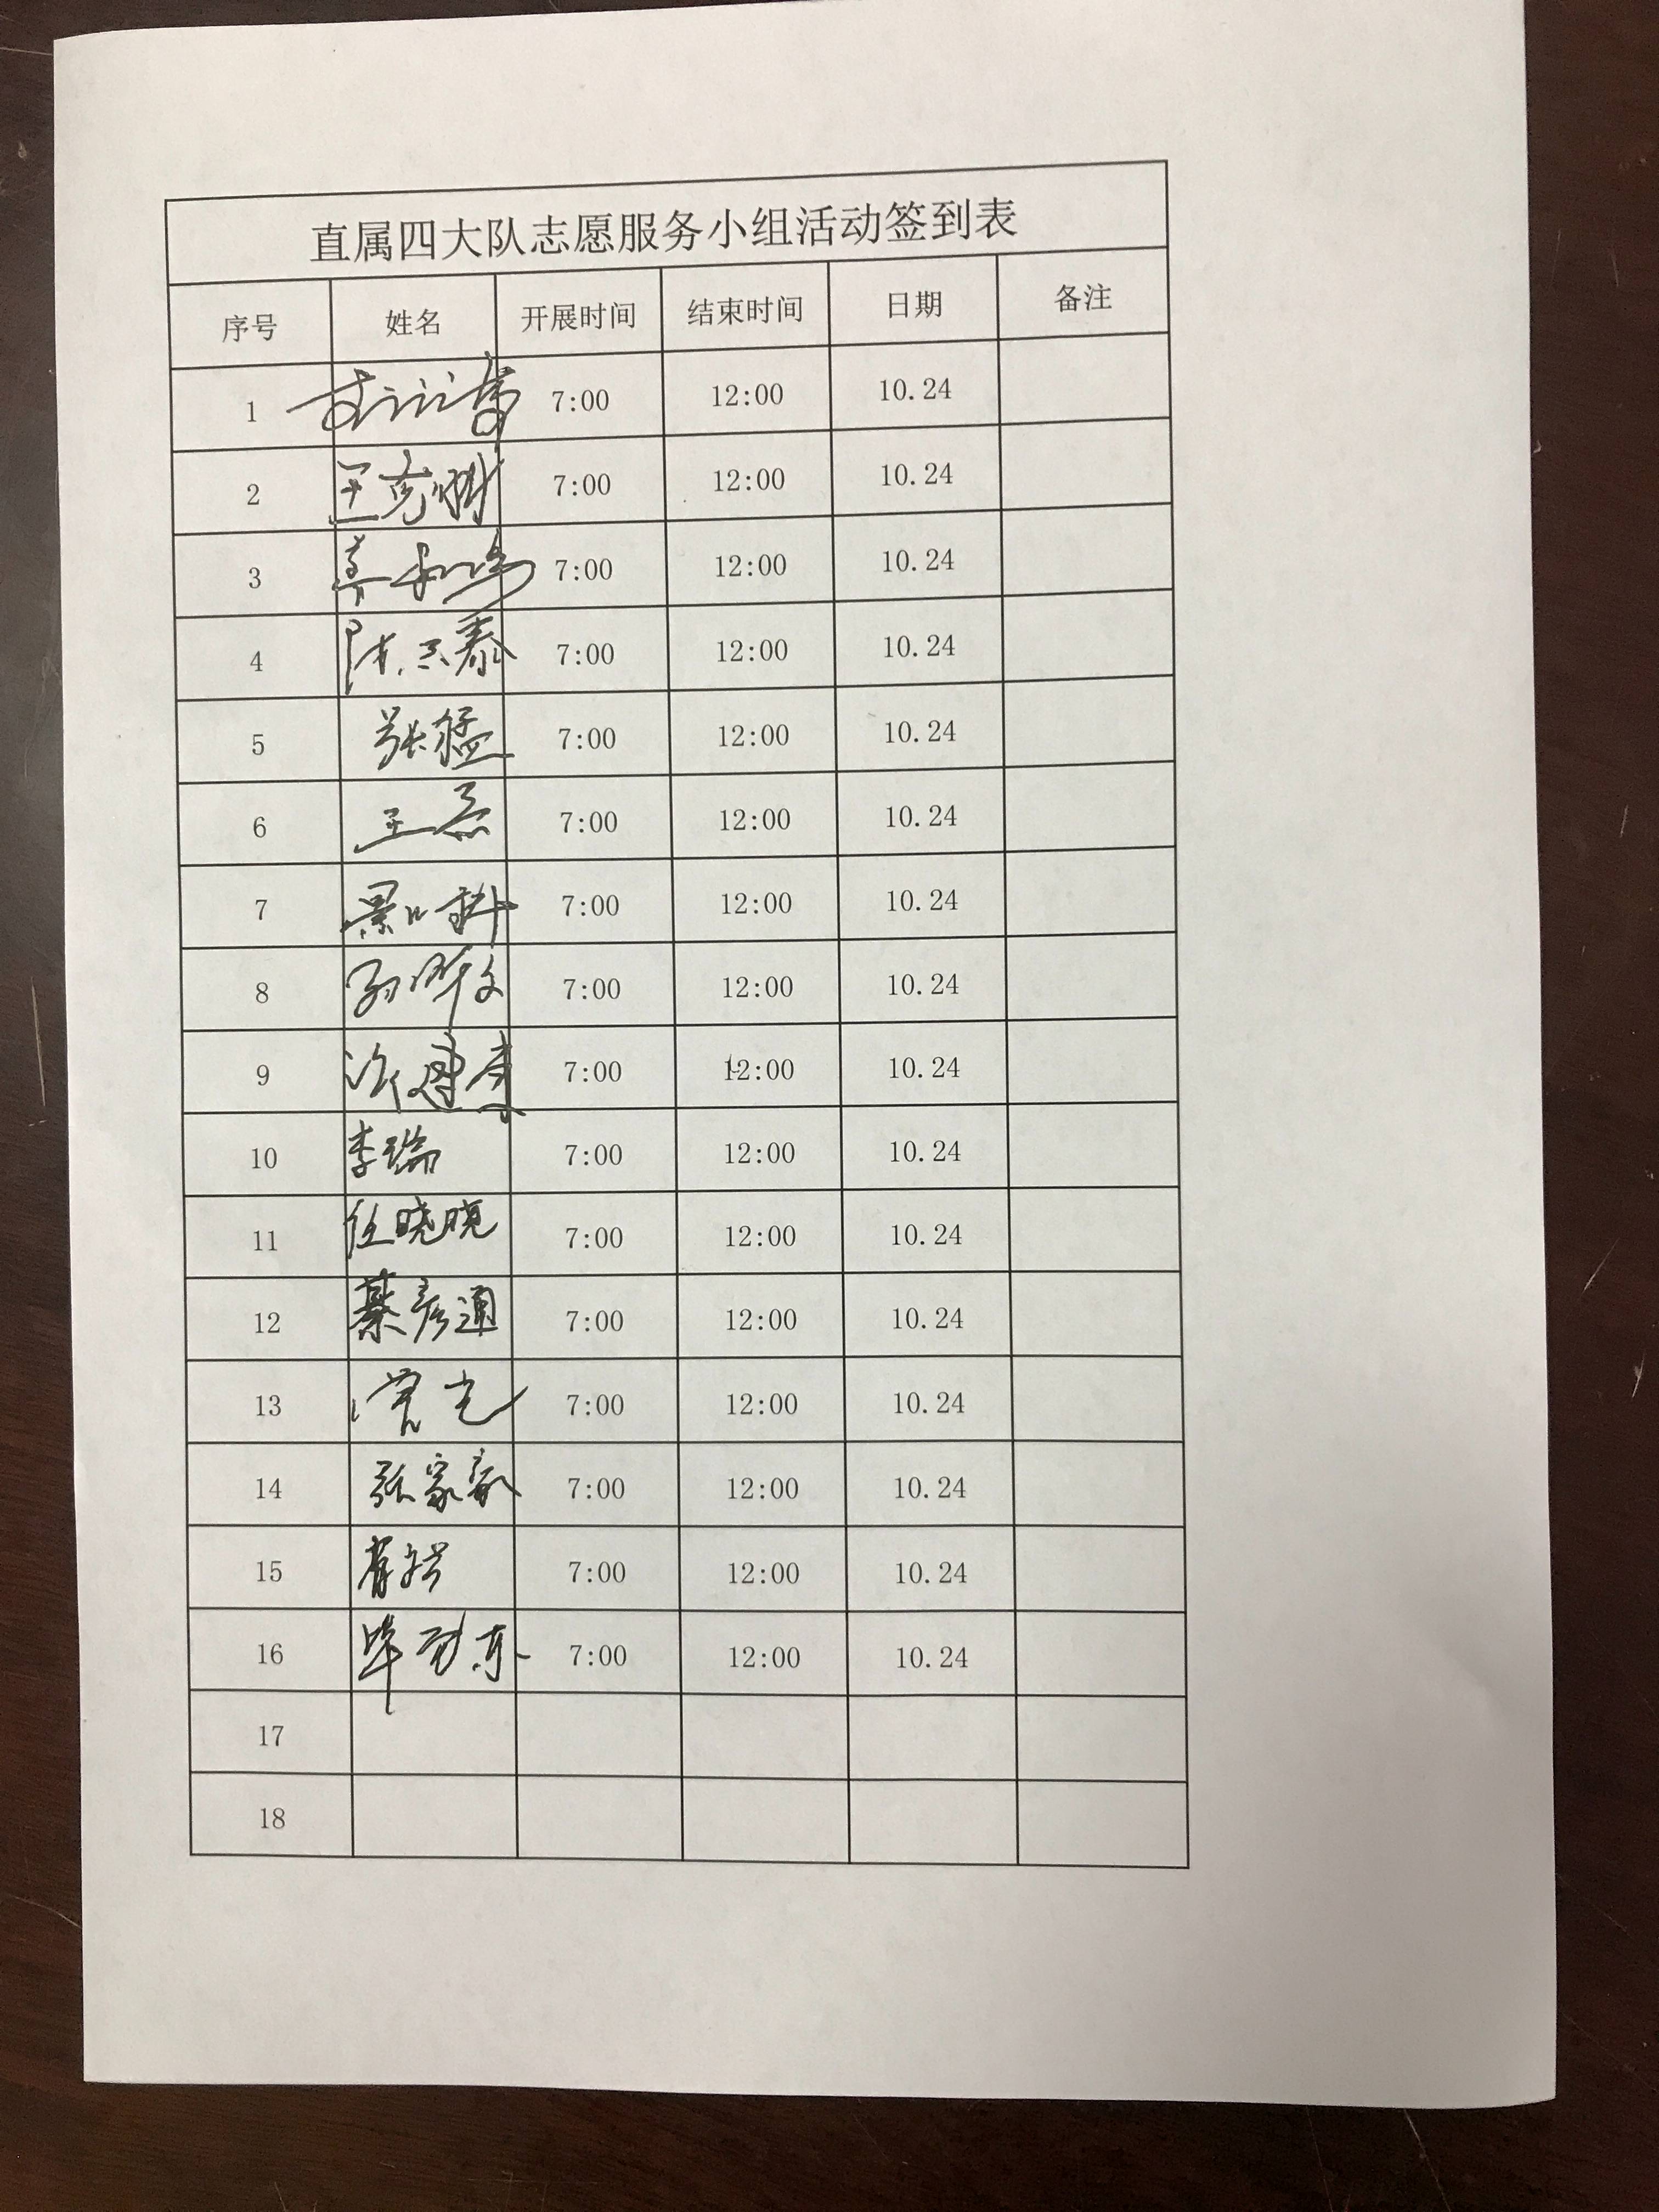 直属四大队志愿服务小组活动签到表
序号 姓名 开展时间 结束时间 日期 备注
1 7:00 12:00 10.24
2 王 7:00 12:00 10.24
3 7:00 12:00 10.24
4 陈志泰 7:00 12:00 10.24
5 张猛 7:00 12:00 10.24
6 王 7:00 12:00 10.24
7 景 7:00 12:00 10.24
8 孙 文 7:00 12:00 10.24
9 许建 7:00 12:00 10.24
10 李瑞 7:00 12:00 10.24
11 任晓晓 7:00 12:00 10.24
12 綦彦通 7:00 12:00 10.24
13 7:00 12:00 10.24
14 张家豪 7:00 12:00 10.24
15 7:00 12:00 10.24
16 毕 东 7:00 12:00 10.24
17
18